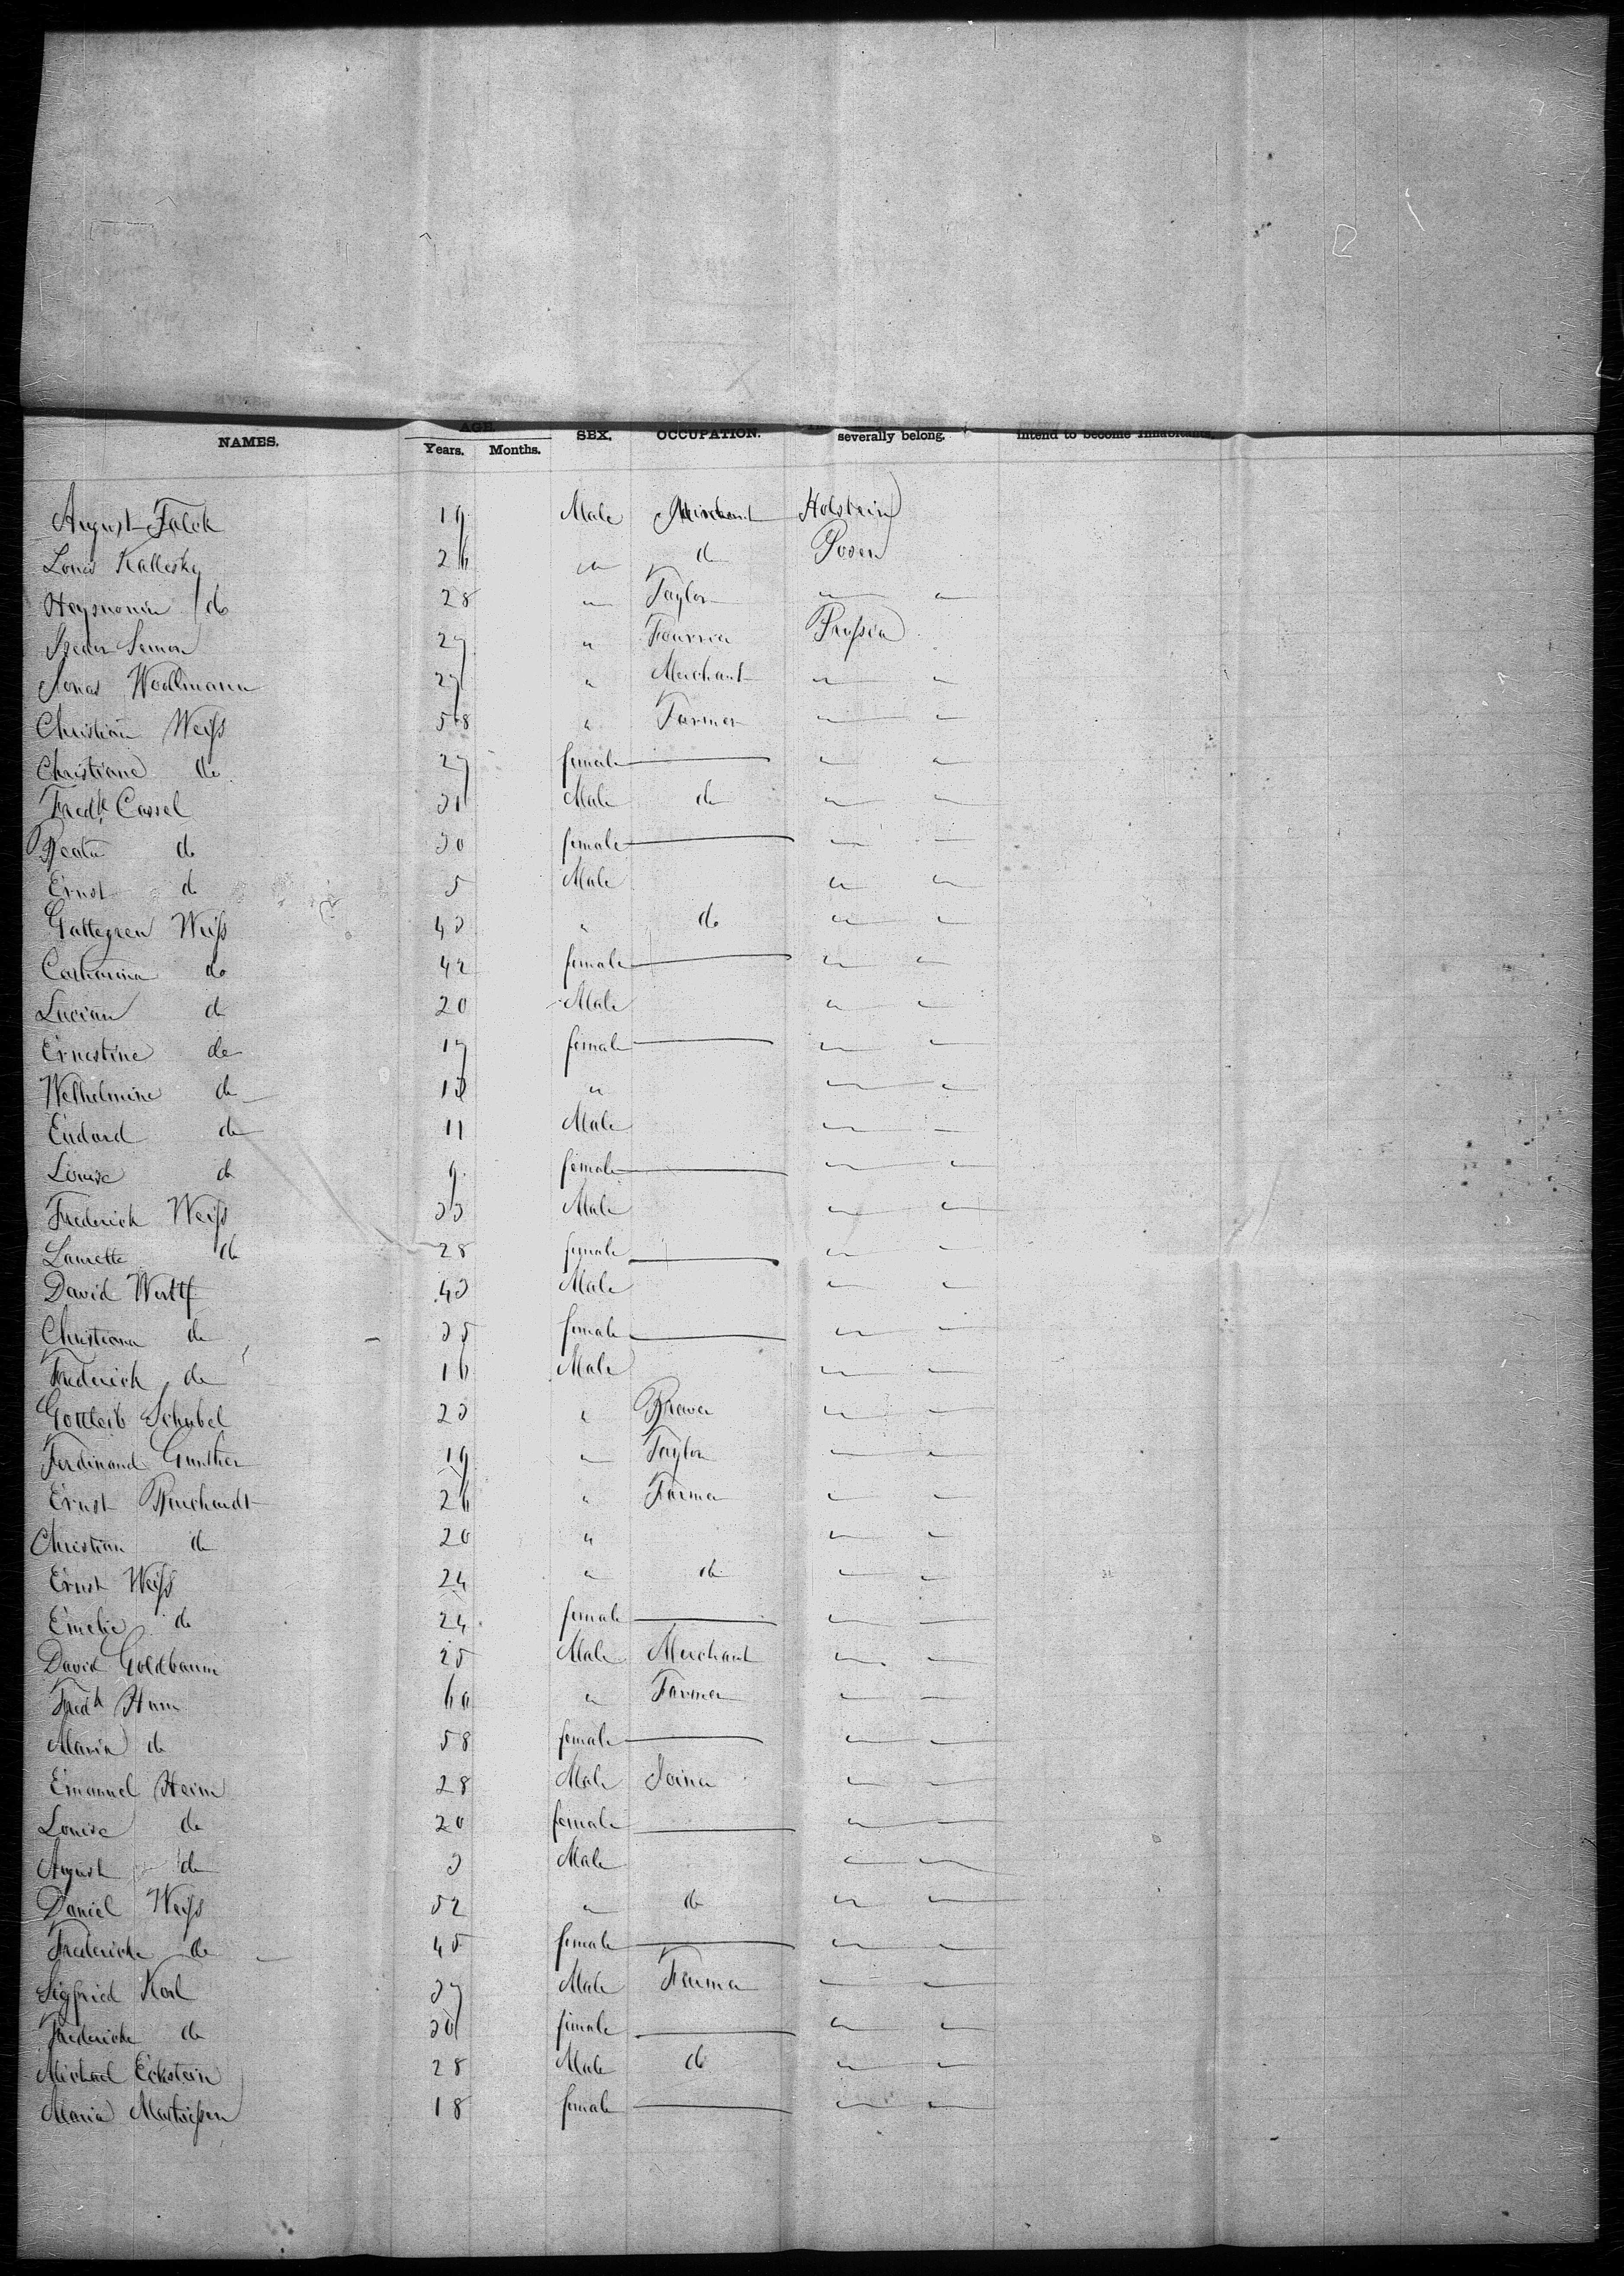 NAMES. AGE. Years. Months. SEX. OCCUPATION. severally belong. intend to become Inhabitants.
August Falck 19 Male Merchant Holstein
Louis Kallesky 26 " do Posen
Heysmonin do 28 " Taylor " "
Isedor Semon 27 " Prussia
Jonas Wollmann 27 " Merchant " "
Christian Weiss 58 " Farmer " "
Christiane do 27 female " "
Fredk Cassel 31 Male do " "
Beata do 30 female " "
Ernst do 5 Male " "
Weiss 43 " do " "
Catharina do 42 female " "
Lucian do 20 Male " "
Ernestine do 17 female " "
Welhelmine do 13 " " "
Eudard do 11 Male " "
Louise do 9 female " "
Frederick Weiss 33 Male " "
Laurette do 28 female " "
David 43 Male " "
Christiana do 35 female " "
Frederick do 16 Male " "
Gottleib Schubel 23 " Brewer " "
Ferdinand Gunther 19 " Taylor " "
Ernst 26 " Farmer " "
Christian do 20 " " "
Ernst Weiss 24 " do " "
Emelie do 24 female " "
David Goldbaum 25 Male Merchant " "
Fredk 60 " Farmer " "
Maria do 58 female " "
Emanuel Heim 28 Male Joiner " "
Louise do 20 female " "
August do 3 Male " "
Daniel Weiss 52 " do " "
Fredericke do 45 female " "
Sigfried 37 Male Farmer " "
Fredericke do 30 female " "
Michael Eckstein 28 Male do " "
Maria 18 female " "